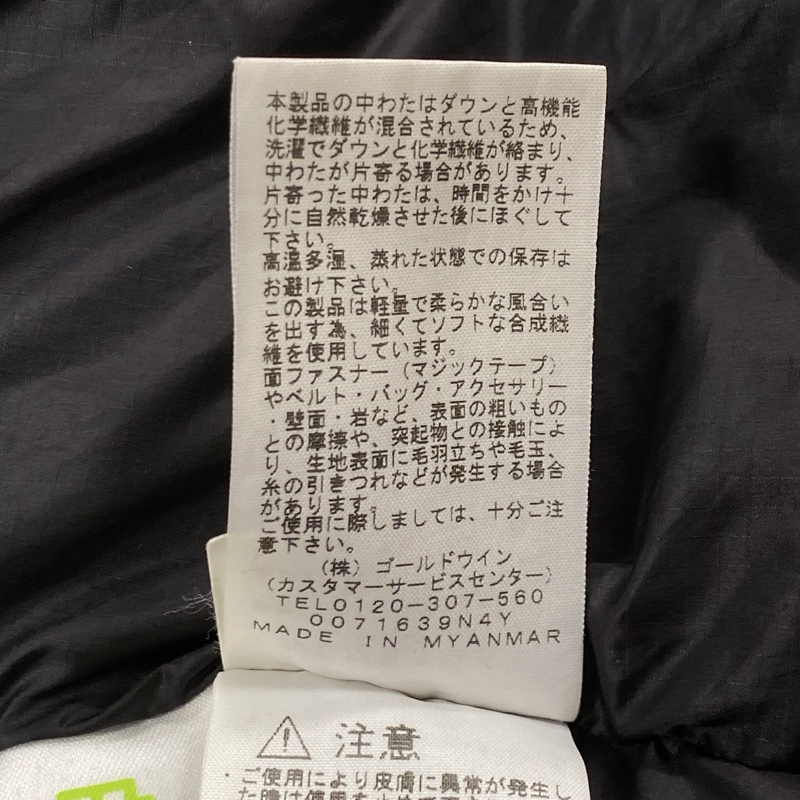 本製品の中わたはダウンと高機能
化学繊維が混合されているため、
洗濯でダウンと化学繊維が絡まり、
中わたが片寄る場合があります。
片寄った中わたは、時間をかけ十
分に自然乾燥させた後にほぐして
下さい。
高温多湿、蒸れた状態での保存は
お避け下さい。
この製品は軽量で柔らかな風合い
を出す為、細くてソフトな合成繊
維を使用しています。
面ファスナー（マジックテープ）
やベルト・バッグ・アクセサリー
・壁面・岩など、表面の粗いもの
との摩擦や、突起物との接触によ
り、生地表面に毛羽立ちや毛玉、
糸の引きつれなどが発生する場合
があります。
ご使用に際しましては、十分ご注
意下さい。
（株）ゴールドウイン
（カスタマーサービスセンター）
TEL0120-307-560
0071639N4Y
MADE IN MYANMAR
⚠ 注意
・ご使用により皮膚に異常が発生し